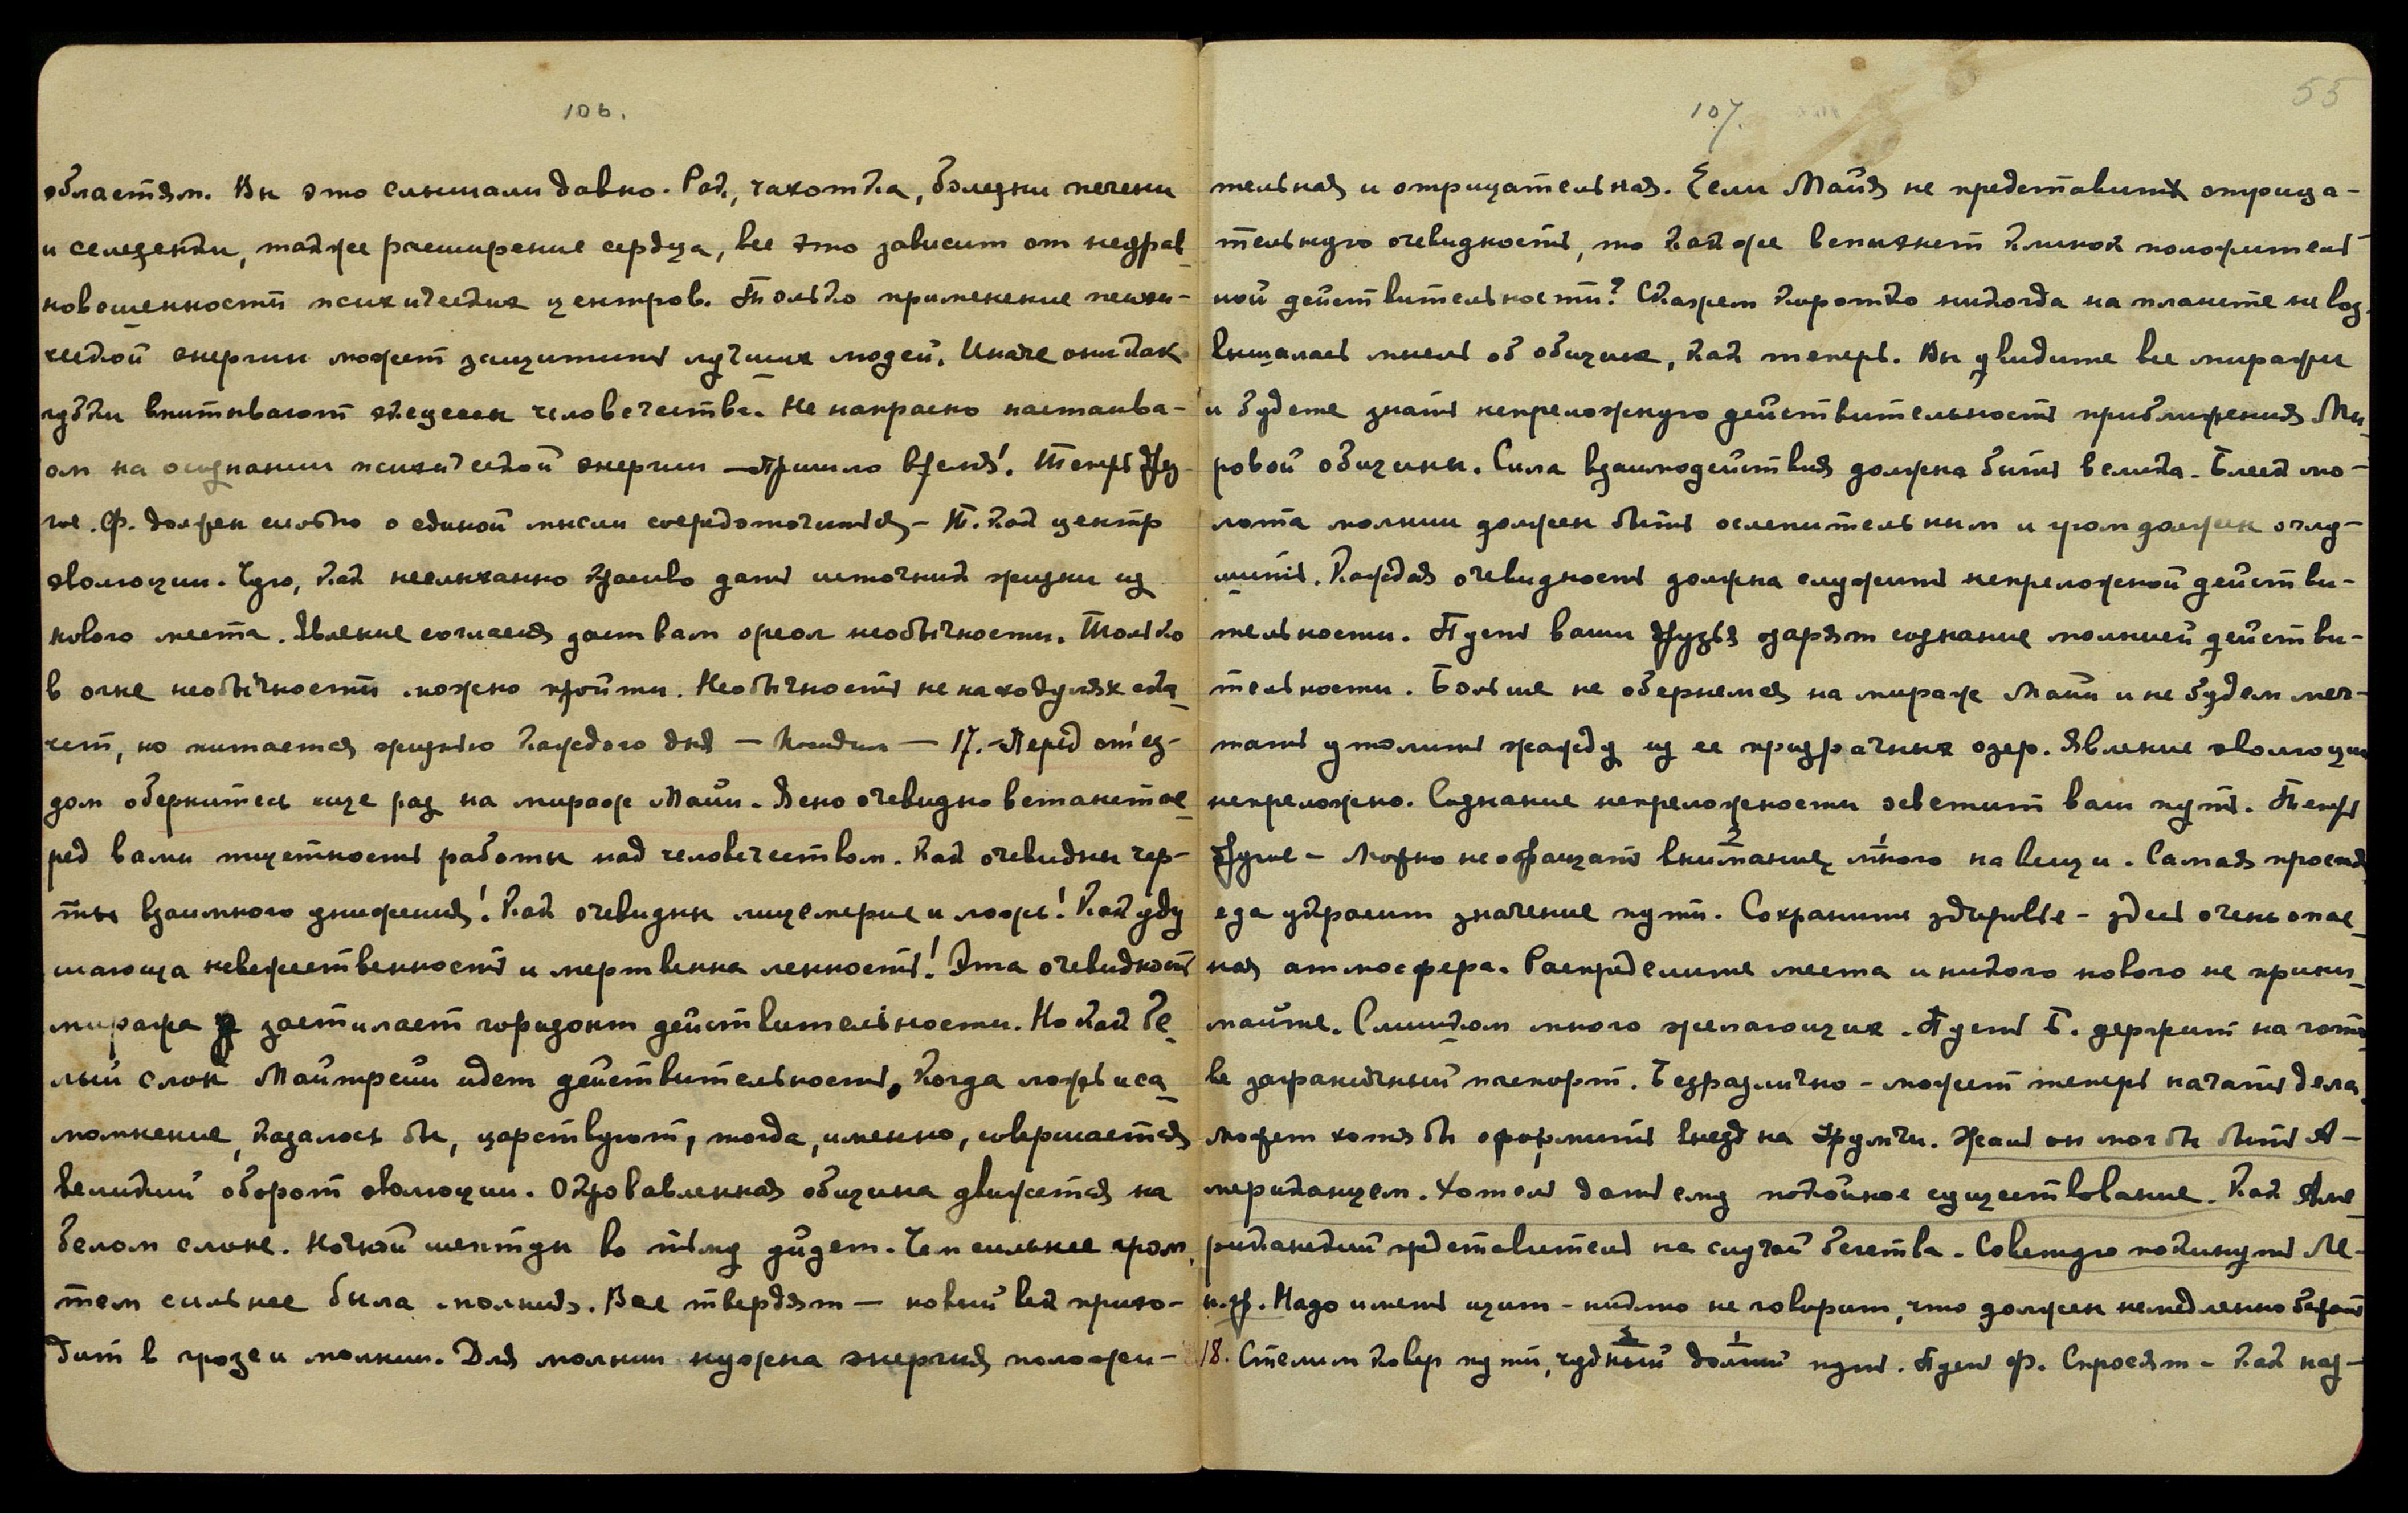 106.
областям. Вы это слышали давно. Рак, чахотка, болезни печени
и селезенки, также расширение сердца, все это зависит от неурав_
новешенности психических центров. Только применение психи-
ческой энергии может защитить лучших людей. Иначе они как
губки впитывают эксцессы человечества. Не напрасно настаива-
ем на осознании психической энергии — Пришло время! Теперь дру-
гое. Ф. должен сильно о единой мысли сосредоточиться - Т. как центр
эволюции. Чую, как неслыханно красиво дать источник жизни из
нового места. Явление согласия даст вам ореол необычности. Только
в огне необычности можно пройти. Необычность не на ходулях ска_
чет, но питается жизнью каждого дня — — 17. - Перед от'ез-
дом обернитесь еще раз на мираж Майи. Ясно очевидно встанет пе_
ред вами тщетность работы над человечеством. Как очевидны чер-
ты взаимного унижения! Как очевидны лицемерие и ложь! Как уду
шающа невежественность и мертвенна леность! Эта очевидность
миража застилает горизонт действительности. Но как бе_
лый слон Майтрейи идет действительность. Когда ложь и са_
момнение, казалось бы, царствуют, тогда, именно, совершается
великий оборот эволюции. Окровавленная община движется на
белом слоне. Ночной шептун во тьму уйдет. Чем сильнее гром,
тем сильнее была молния. Все твердят — новый век прихо-
дит в грозе и молнии. Для молнии нужна энергия положи-
107.
55
тельная и отрицательная. Если Майя не представит отрица-
тельную очевидность, то как же вспыхнет клинок положитель
ной действительности? Скажем коротко никогда на планете не воз_
вышалась мысль об общине, как теперь. Вы увидите все миражи
и будете знать непреложную действительность приближения Ми_
ровой общины. Сила взаимодействия должна быть велика. Блеск мо-
лота молнии должен быть ослепительным и гром должен оглу-
шить. Каждая очевидность должна служить непреложной действи-
тельности. Пусть ваши друзья озарят сознание молнией действи-
тельности. Больше не обернемся на мираж Майи и не будем меч-
тать утолить жажду из ее призрачных озер. Явление эволюции
непреложно. Сознание непреложности осветит ваш путь. Теперь
другое - Можно не обращать внимание много на вещи. Самая простая
еда украсит значение пути. Сохраните здоровье - здесь очень опас_
ная атмосфера. Распределите места и никого нового не прини_
майте. Слишком много желающих. Пусть Б. держит на гото
ве заграничный паспорт. Безразлично - может теперь начать дела,
может хотя бы оформить въезд на Урумчи. Жаль он мог бы быть А-
мериканцем. Хотели дать ему покойное существование. Как Аме_
риканский представитель на случай бегства. Советую покинуть Ле-
н-д. Надо иметь щит - никто не говорит, что должен немедленно бежать
18. Стелим ковер пути, чудный долгий путь. Пусть Ф. Спросят - как наз-